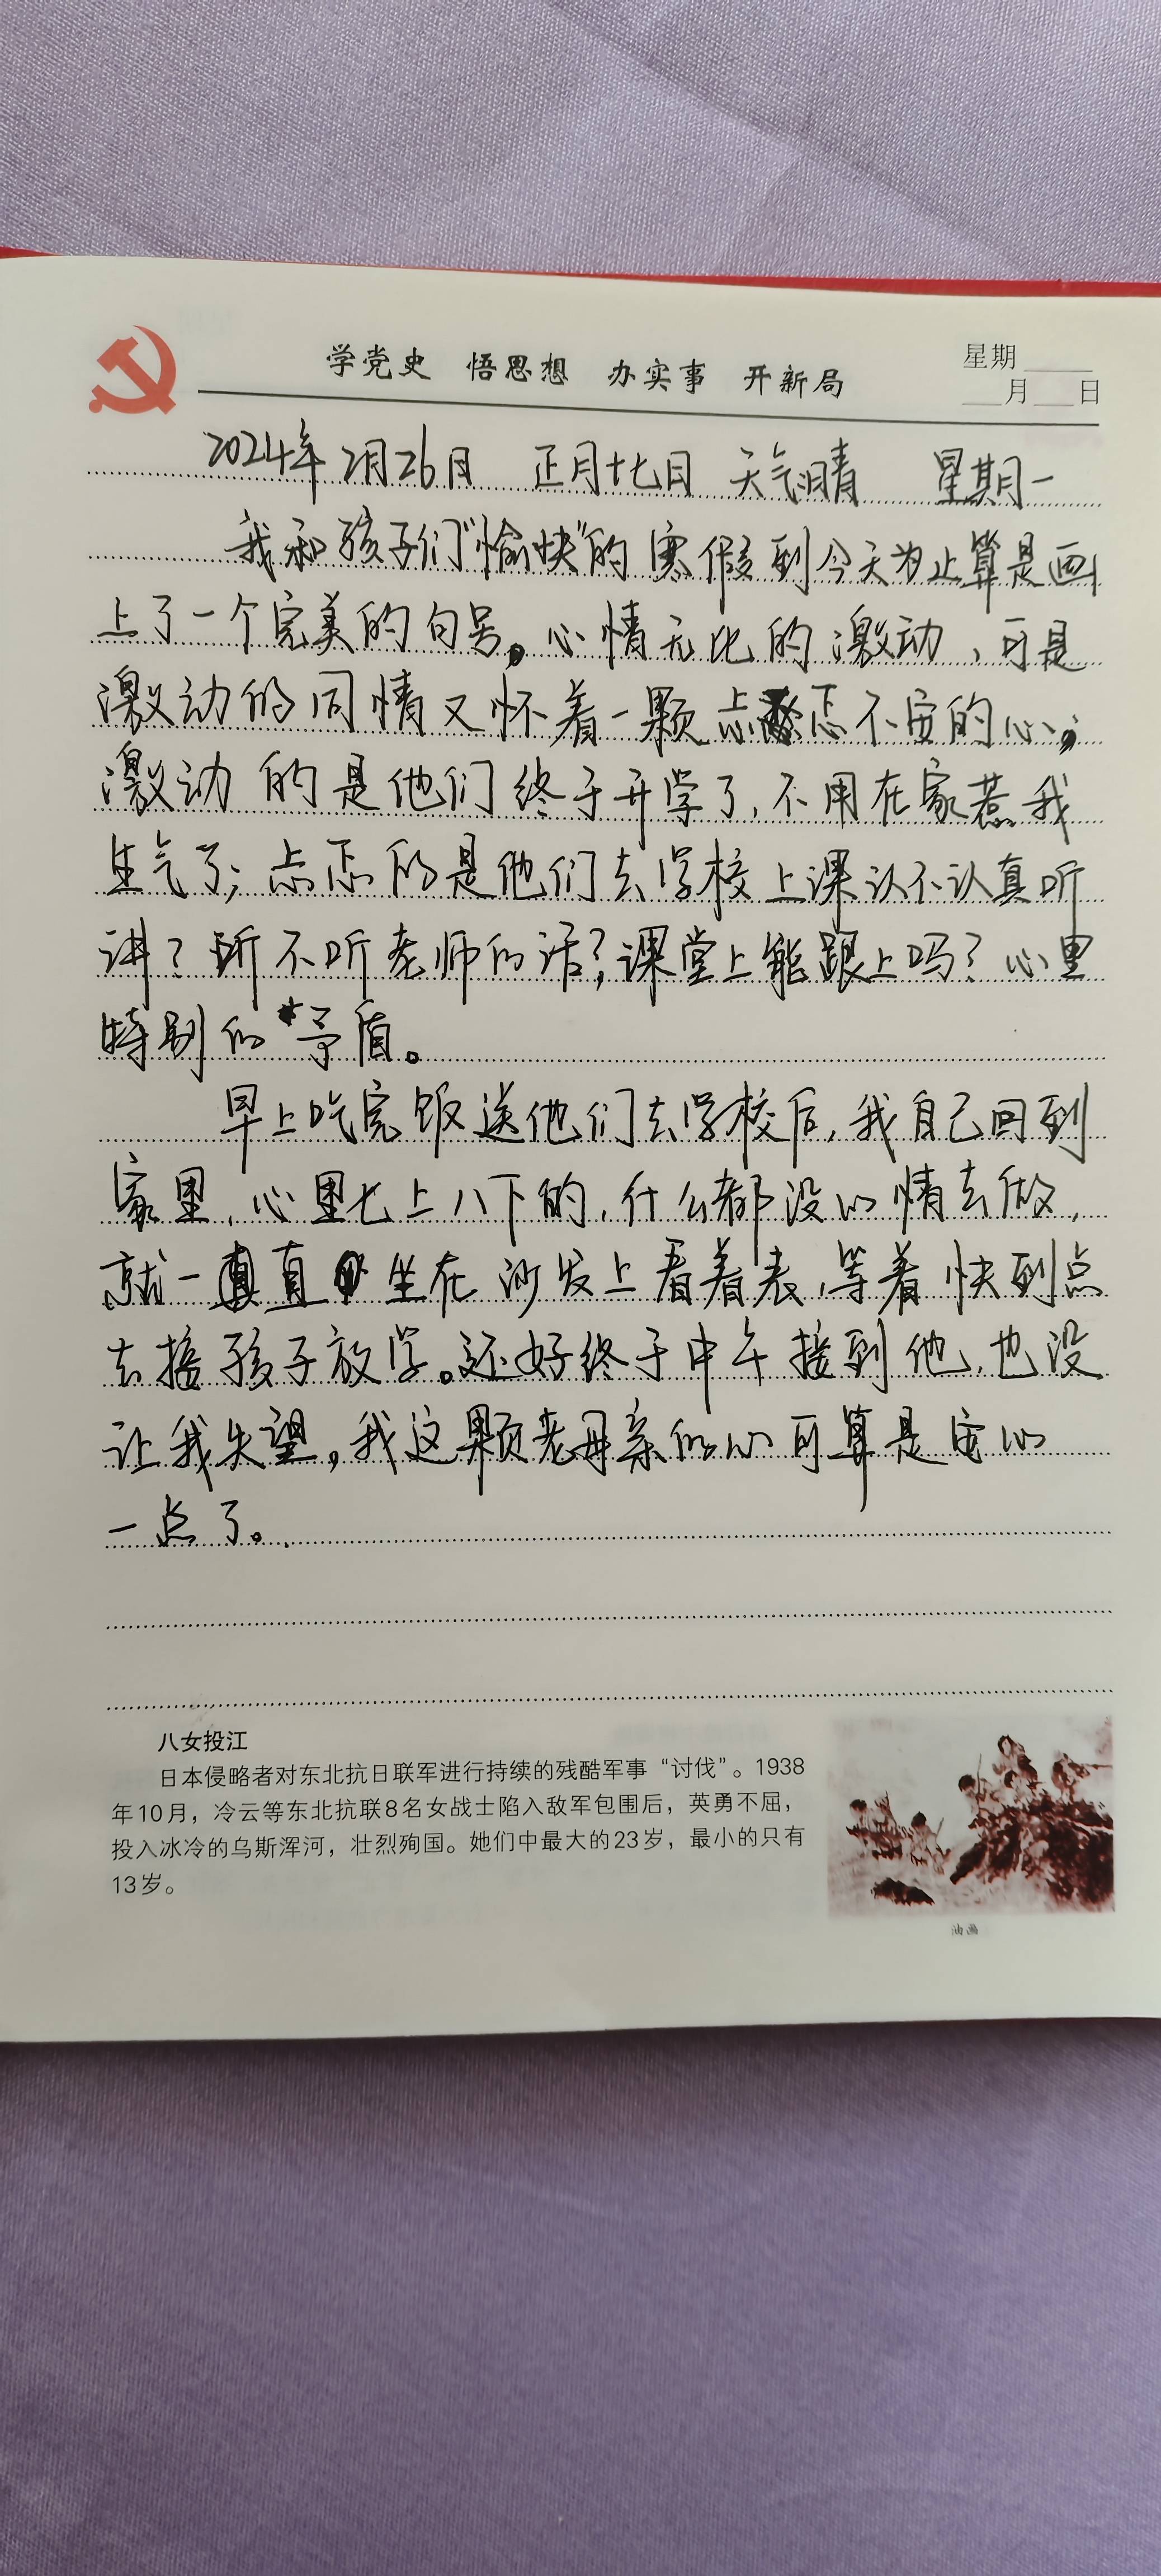 学党史 悟思想 办实事 开新局
星期____
___月___日
2024年2月26日 正月十七日 天气晴 星期一
我和孩子们“愉快”的寒假到今天为止算是画
上了一个完美的句号。心情无比的激动，可是
激动的同情又怀着一颗忐忑不安的心。
激动的是他们终于开学了，不用在家惹我
生气了；忐忑的是他们去学校上课认不认真听
讲？听不听老师的话？课堂上能跟上吗？心里
特别的矛盾。
早上吃完饭送他们去学校后，我自己回到
家里，心里七上八下的，什么都没心情去做，
就一直直坐在沙发上看着表，等着快到点
去接孩子放学。还好终于中午接到他，也没
让我失望，我这颗老母亲的心可算是安心
一点了。
八女投江
日本侵略者对东北抗日联军进行持续的残酷军事“讨伐”。1938
年10月，冷云等东北抗联8名女战士陷入敌军包围后，英勇不屈，
投入冰冷的乌斯浑河，壮烈殉国。她们中最大的23岁，最小的只有
13岁。
油画